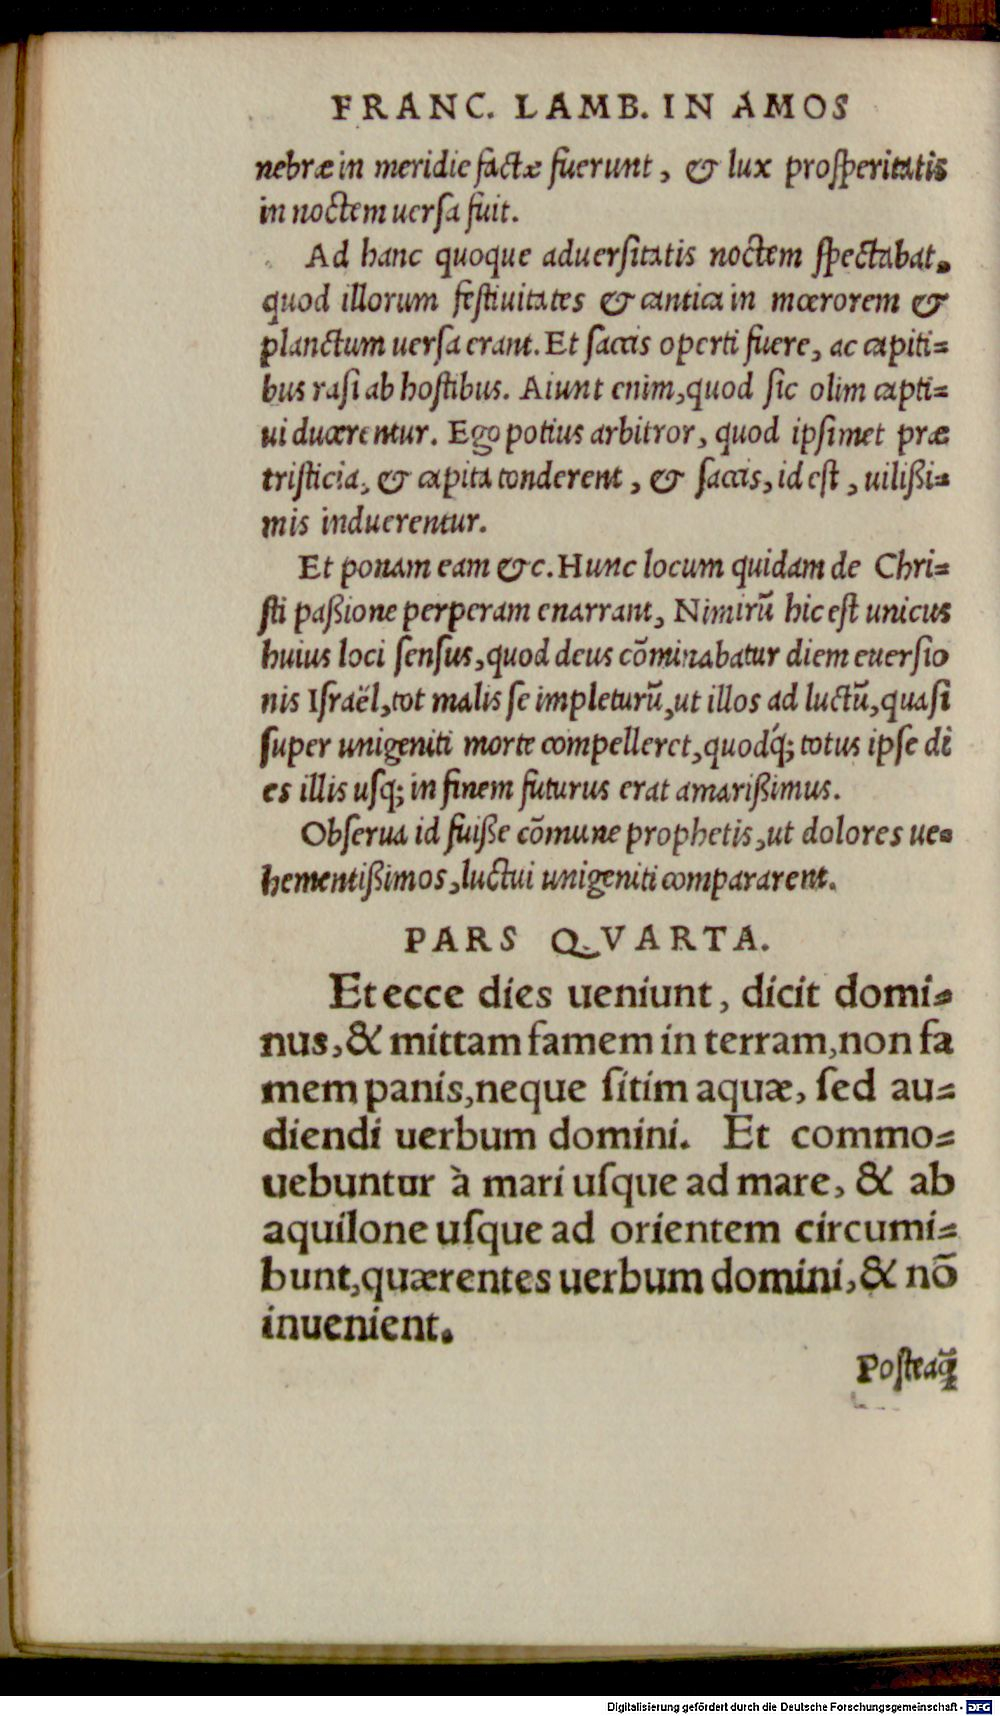 FRANC. LAMB. IN AMOS
nebræ in meridie factæ fuerunt, & lux prosperitatis
in noctem uersa fuit.
Ad hanc quoque aduersitatis noctem spectabat,
quod illorum festiuitates & cantica in mœrorem &
planctum uersa erant. Et saccis operti fuere, ac capiti=
bus rasi ab hostibus. Aiunt enim, quod sic olim capti=
ui ducerentur. Ego potius arbitror, quod ipsimet præ
tristicia, & capita tonderent, & saccis, id est, uilißi=
mis induerentur.
Et ponam eam &c. Hunc locum quidam de Chri=
sti paßione perperam enarrant, Nimirũ hic est unicus
huius loci sensus, quod deus cõminabatur diem euersio
nis Israël, tot malis se impleturũ, ut illos ad luctũ, quasi
super unigeniti morte compelleret, quodq́; totus ipse di
es illis usq; in finem futurus erat amarißimus.
Obserua id fuiße cõmune prophetis, ut dolores ue=
hementißimos, luctui unigeniti compararent.
PARS QVARTA.
Et ecce dies ueniunt, dicit domi=
nus, & mittam famem in terram, non fa
mem panis, neque sitim aquæ, sed au=
diendi uerbum domini. Et commo=
uebuntur à mari usque ad mare, & ab
aquilone usque ad orientem circumi=
bunt, quærentes uerbum domini, & nõ
inuenient.
Posteaq̃
Digitalisierung gefördert durch die Deutsche Forschungsgemeinschaft - DFG